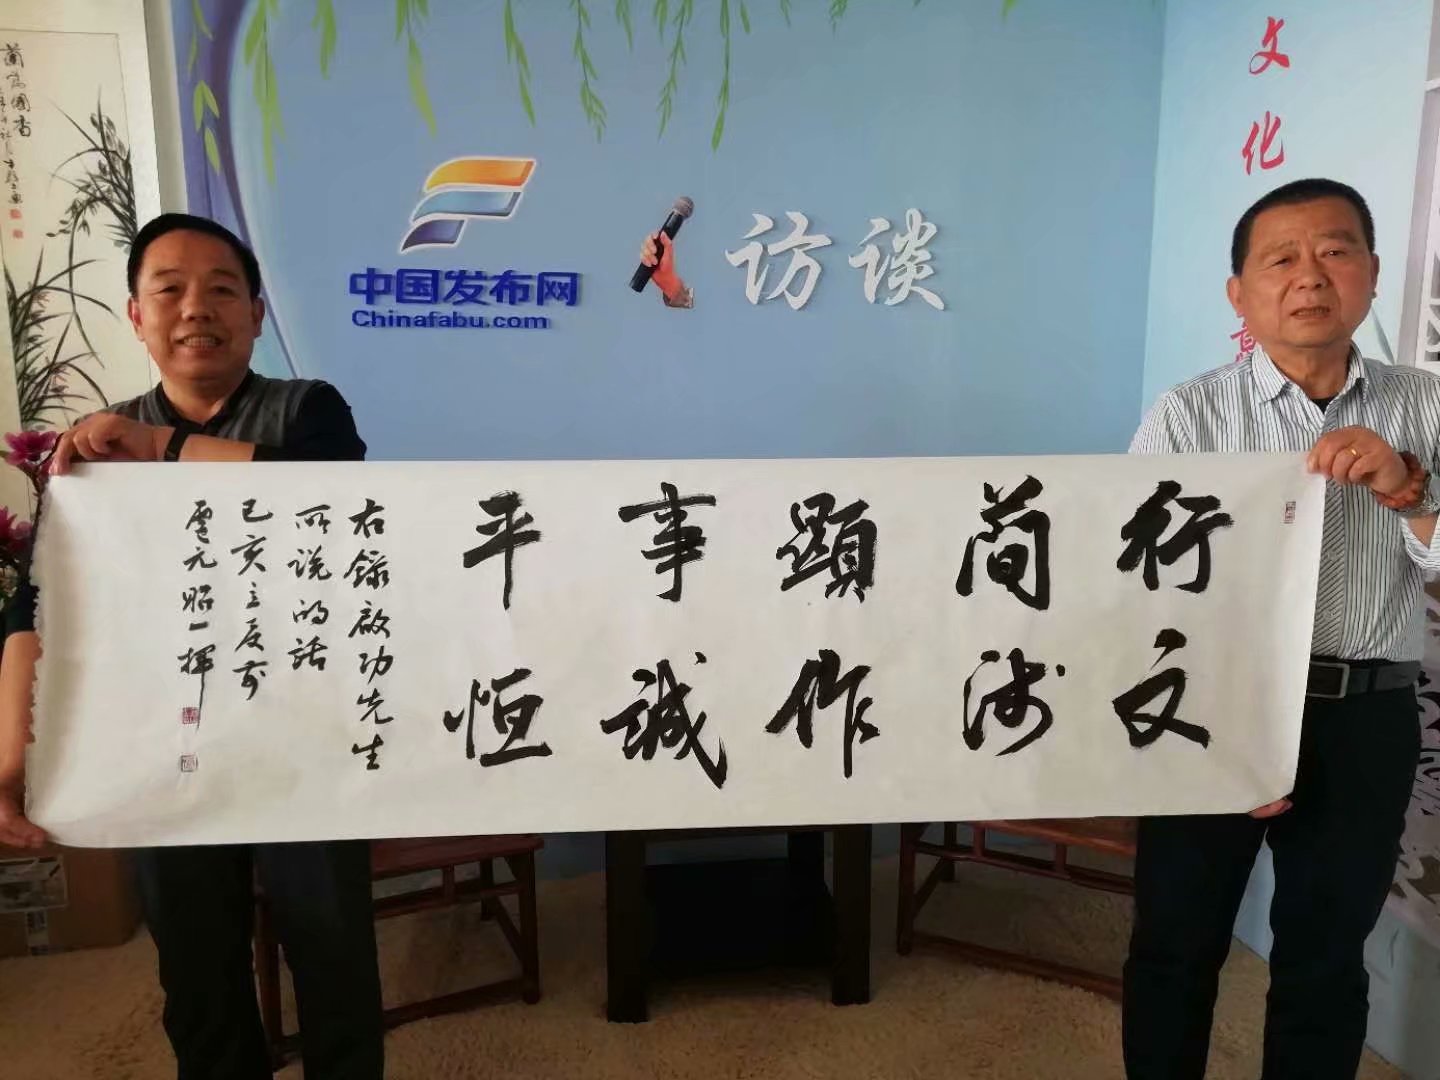 蘭為國香
中国发布网
Chinafabu.com
访谈
文化
行文
简浅
顕作
事誠
平恒
右録啟功先生
所说的话
己亥立夏前
元昭一揮